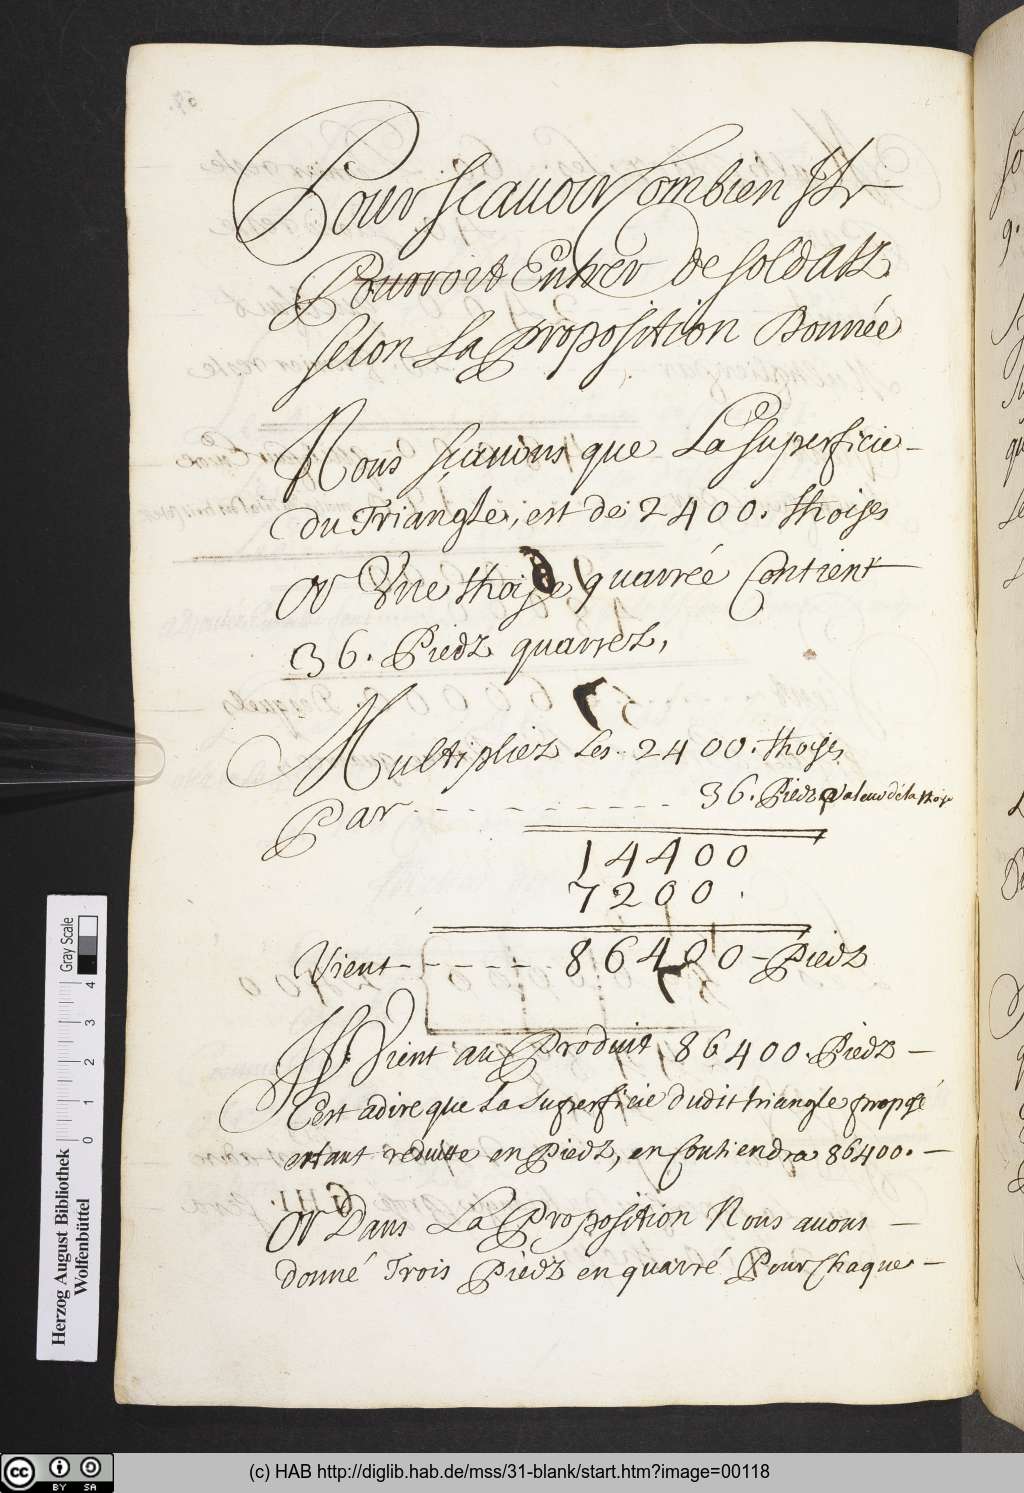 Pour sçauoir Combien Il
Pourroit Entrer de soldatz
selon La Proposition Donnée
Nous sçauons que La superficie
du Triangle, est de 2400. thoises
Or Une thoise quarrée Contient
36. Piedz quarrez,
Multipliez Les 2400. thoises
Par - - - - - - - - - 36. Piedz valeur de la thoise
14400
7200 .
Vient - - - - - 86400 - Piedz
Il Vient au Produit, 86400. Piedz -
C'est adire que La superficie dudit triangle proposé
estant reduitte en Piedz, en Contiendra 86400. -
Or Dans La Proposition Nous auons -
donné Trois Piedz en quarré Pour Chaque -
Herzog August Bibliothek
Wolfenbüttel
Gray Scale
0 1 2 3 4
cc BY SA
(c) HAB http://diglib.hab.de/mss/31-blank/start.htm?image=00118